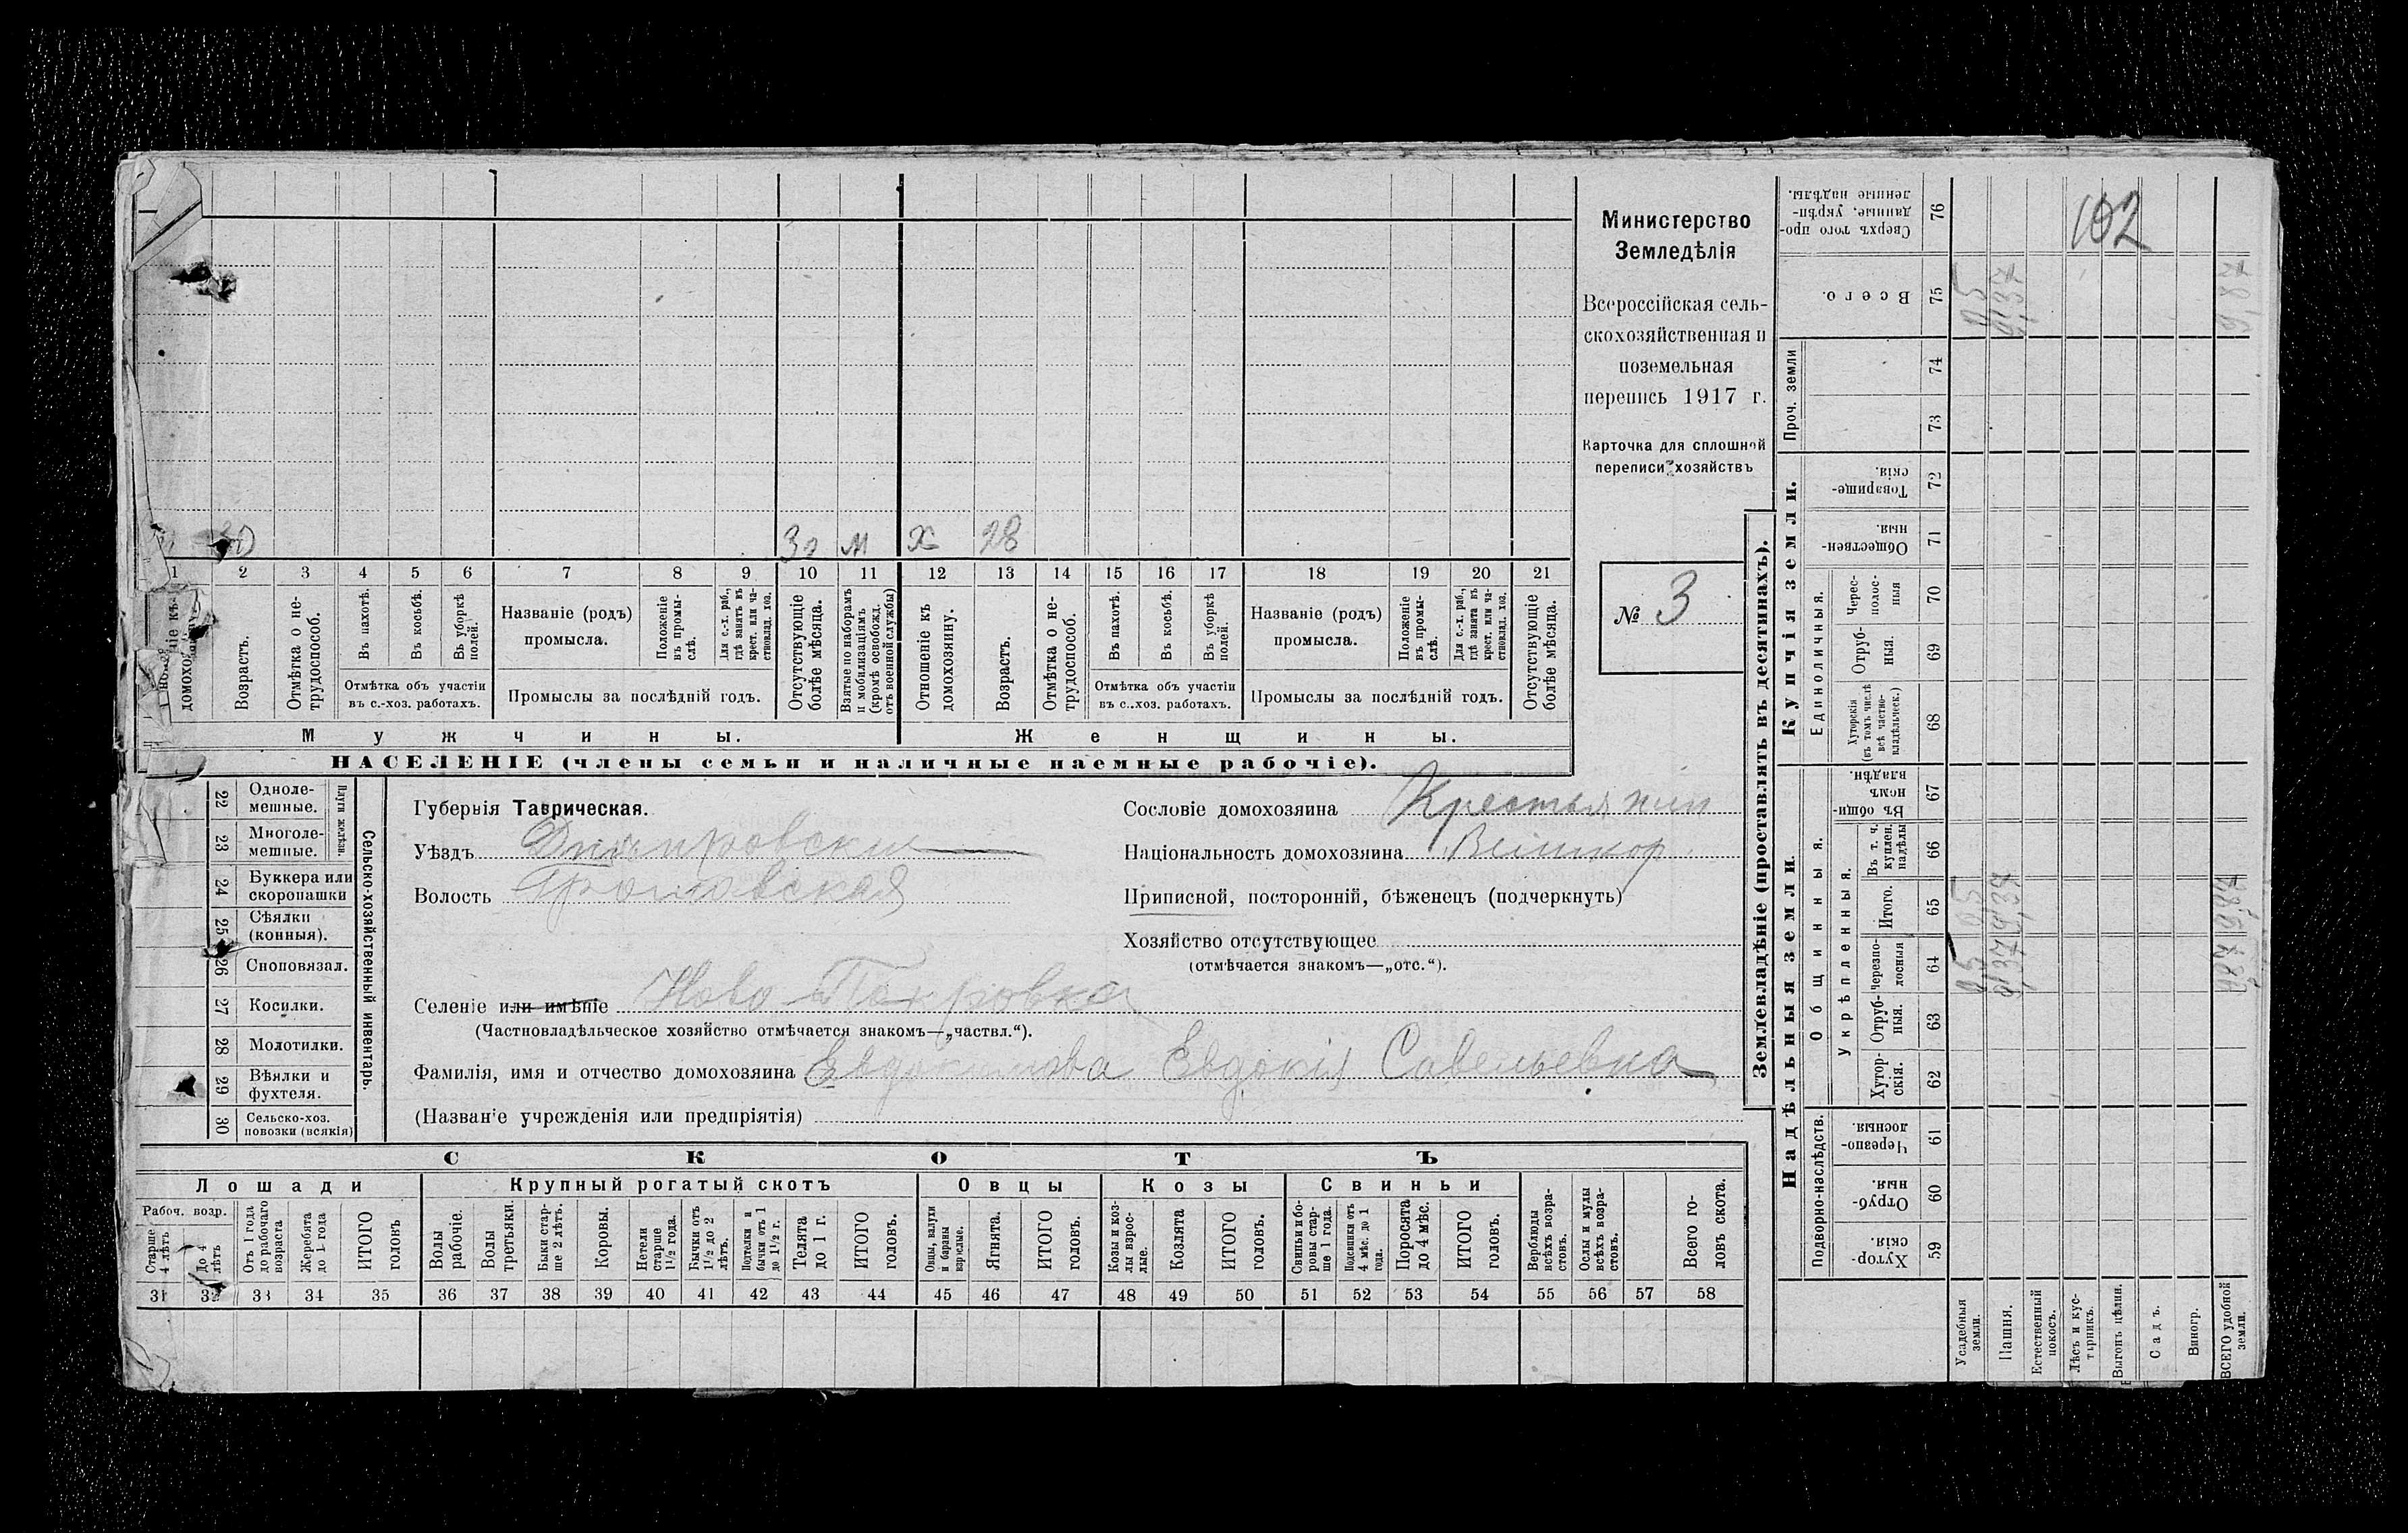 102
Министерство
Земледѣлія
Всероссійская сель-
скохозяйственная и
поземельная
перепись 1917 г.
Карточка для сплошной
переписи хозяйствъ
№ 3
30 30 м х 28
1 2 3 4 5 6 7 8 9 10 11 12 13 14 15 16 17 18 19 20 21
домохоз
Возрастъ.
Отмѣтка о не-
трудоспособ.
Въ пахотѣ.
Въ косьбѣ.
Въ уборкѣ
полей.
Отмѣтка объ участіи
въ с.-хоз. работахъ.
Названіе (родъ)
промысла.
Положеніе
въ промы-
слѣ.
Для с.-х. раб.,
гдѣ занятъ въ
крест. или ча-
стновлад. хоз.
Промыслы за послѣдній годъ.
Отсутствующіе
болѣе мѣсяца.
Взятые по наборамъ
и мобилизаціямъ
(кромѣ освобожд.
отъ военной службы)
Отношеніе къ
домохозяину.
Возрастъ.
Отмѣтка о не-
трудоспособ.
Въ пахотѣ.
Въ косьбѣ.
Въ уборкѣ
полей.
Отмѣтка объ участіи
въ с..хоз. работахъ.
Названіе (родъ)
промысла.
Положеніе
въ промы-
слѣ.
Для с.-х. раб.,
гдѣ занята въ
крест. или ча-
стновлад. хоз.
Промыслы за послѣдній годъ.
Отсутствующіе
болѣе мѣсяца.
Мужчины.
Женщины.
НАСЕЛЕНІЕ (члены семьи и наличные наемные рабочіе).
22 Одноле-
мешные.
23 Многоле-
мешные.
Плуги желѣзн.
24 Буккера или
скоропашки
25 Сѣялки
(конныя).
26 Сноповязал.
27 Косилки.
28 Молотилки.
29 Вѣялки и
фухтеля.
30 Сельско-хоз.
повозки (всякія)
Сельско-хозяйственный инвентарь.
Губернія Таврическая.
Уѣздъ Днѣпровский
Волость
Селеніе или имѣніе Ново-Покровка
(Частновладѣльческое хозяйство отмѣчается знакомъ—„частвл.“).
Фамилія, имя и отчество домохозяина Евдокимова Евдокія Савельевна
(Назван'е учрежденія или предпріятія)
Сословіе домохозяина Крестьянин
Національность домохозяина
Приписной, посторонній, бѣженецъ (подчеркнуть)
Хозяйство отсутствующее
(отмѣчается знакомъ—„отс.“).
СКОТЪ
Лошади
Крупный рогатый скотъ
Овцы
Козы
Свиньи
Рабоч. возр.
Старше
4 лѣтъ
До 4
лѣтъ
Отъ 1 года
до рабочаго
возраста
Жеребята
до 1 года
ИТОГО
головъ
Волы
рабочіе.
Волы
третьяки.
Быки стар-
ше 2 лѣтъ.
Коровы.
Нетели
старше
1½ года.
Бычки отъ
1½ до 2
лѣтъ.
Подтелки и
бычки отъ 1
до 1½ г.
Телята
до 1 г.
ИТОГО
головъ.
Овцы, валухи
и бараны
взрослые.
Ягнята.
ИТОГО
головъ.
Козы и коз-
лы взрос-
лые.
Козлята
ИТОГО
головъ.
Свиньи и бо-
ровы стар-
ше 1 года.
Подсвинки отъ
4 мѣс. до 1
года.
Поросята
до 4 мѣс.
ИТОГО
головъ.
Верблюды
всѣхъ возра-
стовъ.
Ослы и мулы
всѣхъ возра-
стовъ.
Всего го-
ловъ скота.
31 32 33 34 35 36 37 38 39 40 41 42 43 44 45 46 47 48 49 50 51 52 53 54 55 56 57 58
Землевладѣніе (проставлять въ десятинахъ).
Надѣльныя земли.
Купчія земли.
Проч. земли
Подворно-наслѣдств.
Общинныя.
Укрѣпленныя.
Единоличныя.
Хутор-
скія.
59
Отруб-
ныя.
60
Черезпо-
лосныя.
61
Хутор-
скія.
62
Отруб-
ныя.
63
Черезпо-
лосныя
64
Итого.
65
Въ т. ч.
куплен.
надѣлы
66
Въ общи-
номъ
владѣн.
67
Хуторскія
(въ томъ числѣ
всѣ частно-
владѣльческ.)
68
Отруб-
ныя.
69
Черес-
полос-
ныя
70
Обществен-
ныя.
71
Товарище-
скія.
72
73
74
Всего.
75
Сверхъ того про-
данные, укрѣп-
ленные надѣлы.
76
Усадебныя
земли.
05 05 05
Пашня.
9,37 9,37 9,37
Естественный
покосъ.
Лѣсъ и кус-
тарникъ.
Выгонъ цѣлин.
Садъ.
Виногр.
ВСЕГО удобной
земли.
9,87